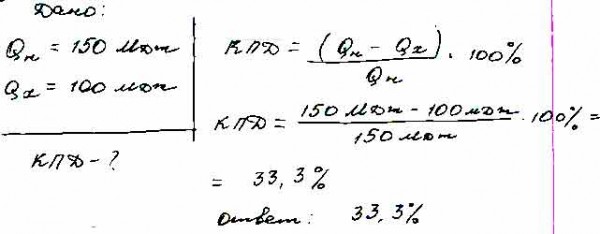 Дано:
Qн = 150 МДж
Qх = 100 МДж
КПД - ?
КПД = (Qн - Qх) / Qн · 100%
КПД = 150 МДж - 100 МДж / 150 МДж · 100% =
= 33,3%
Ответ: 33,3%